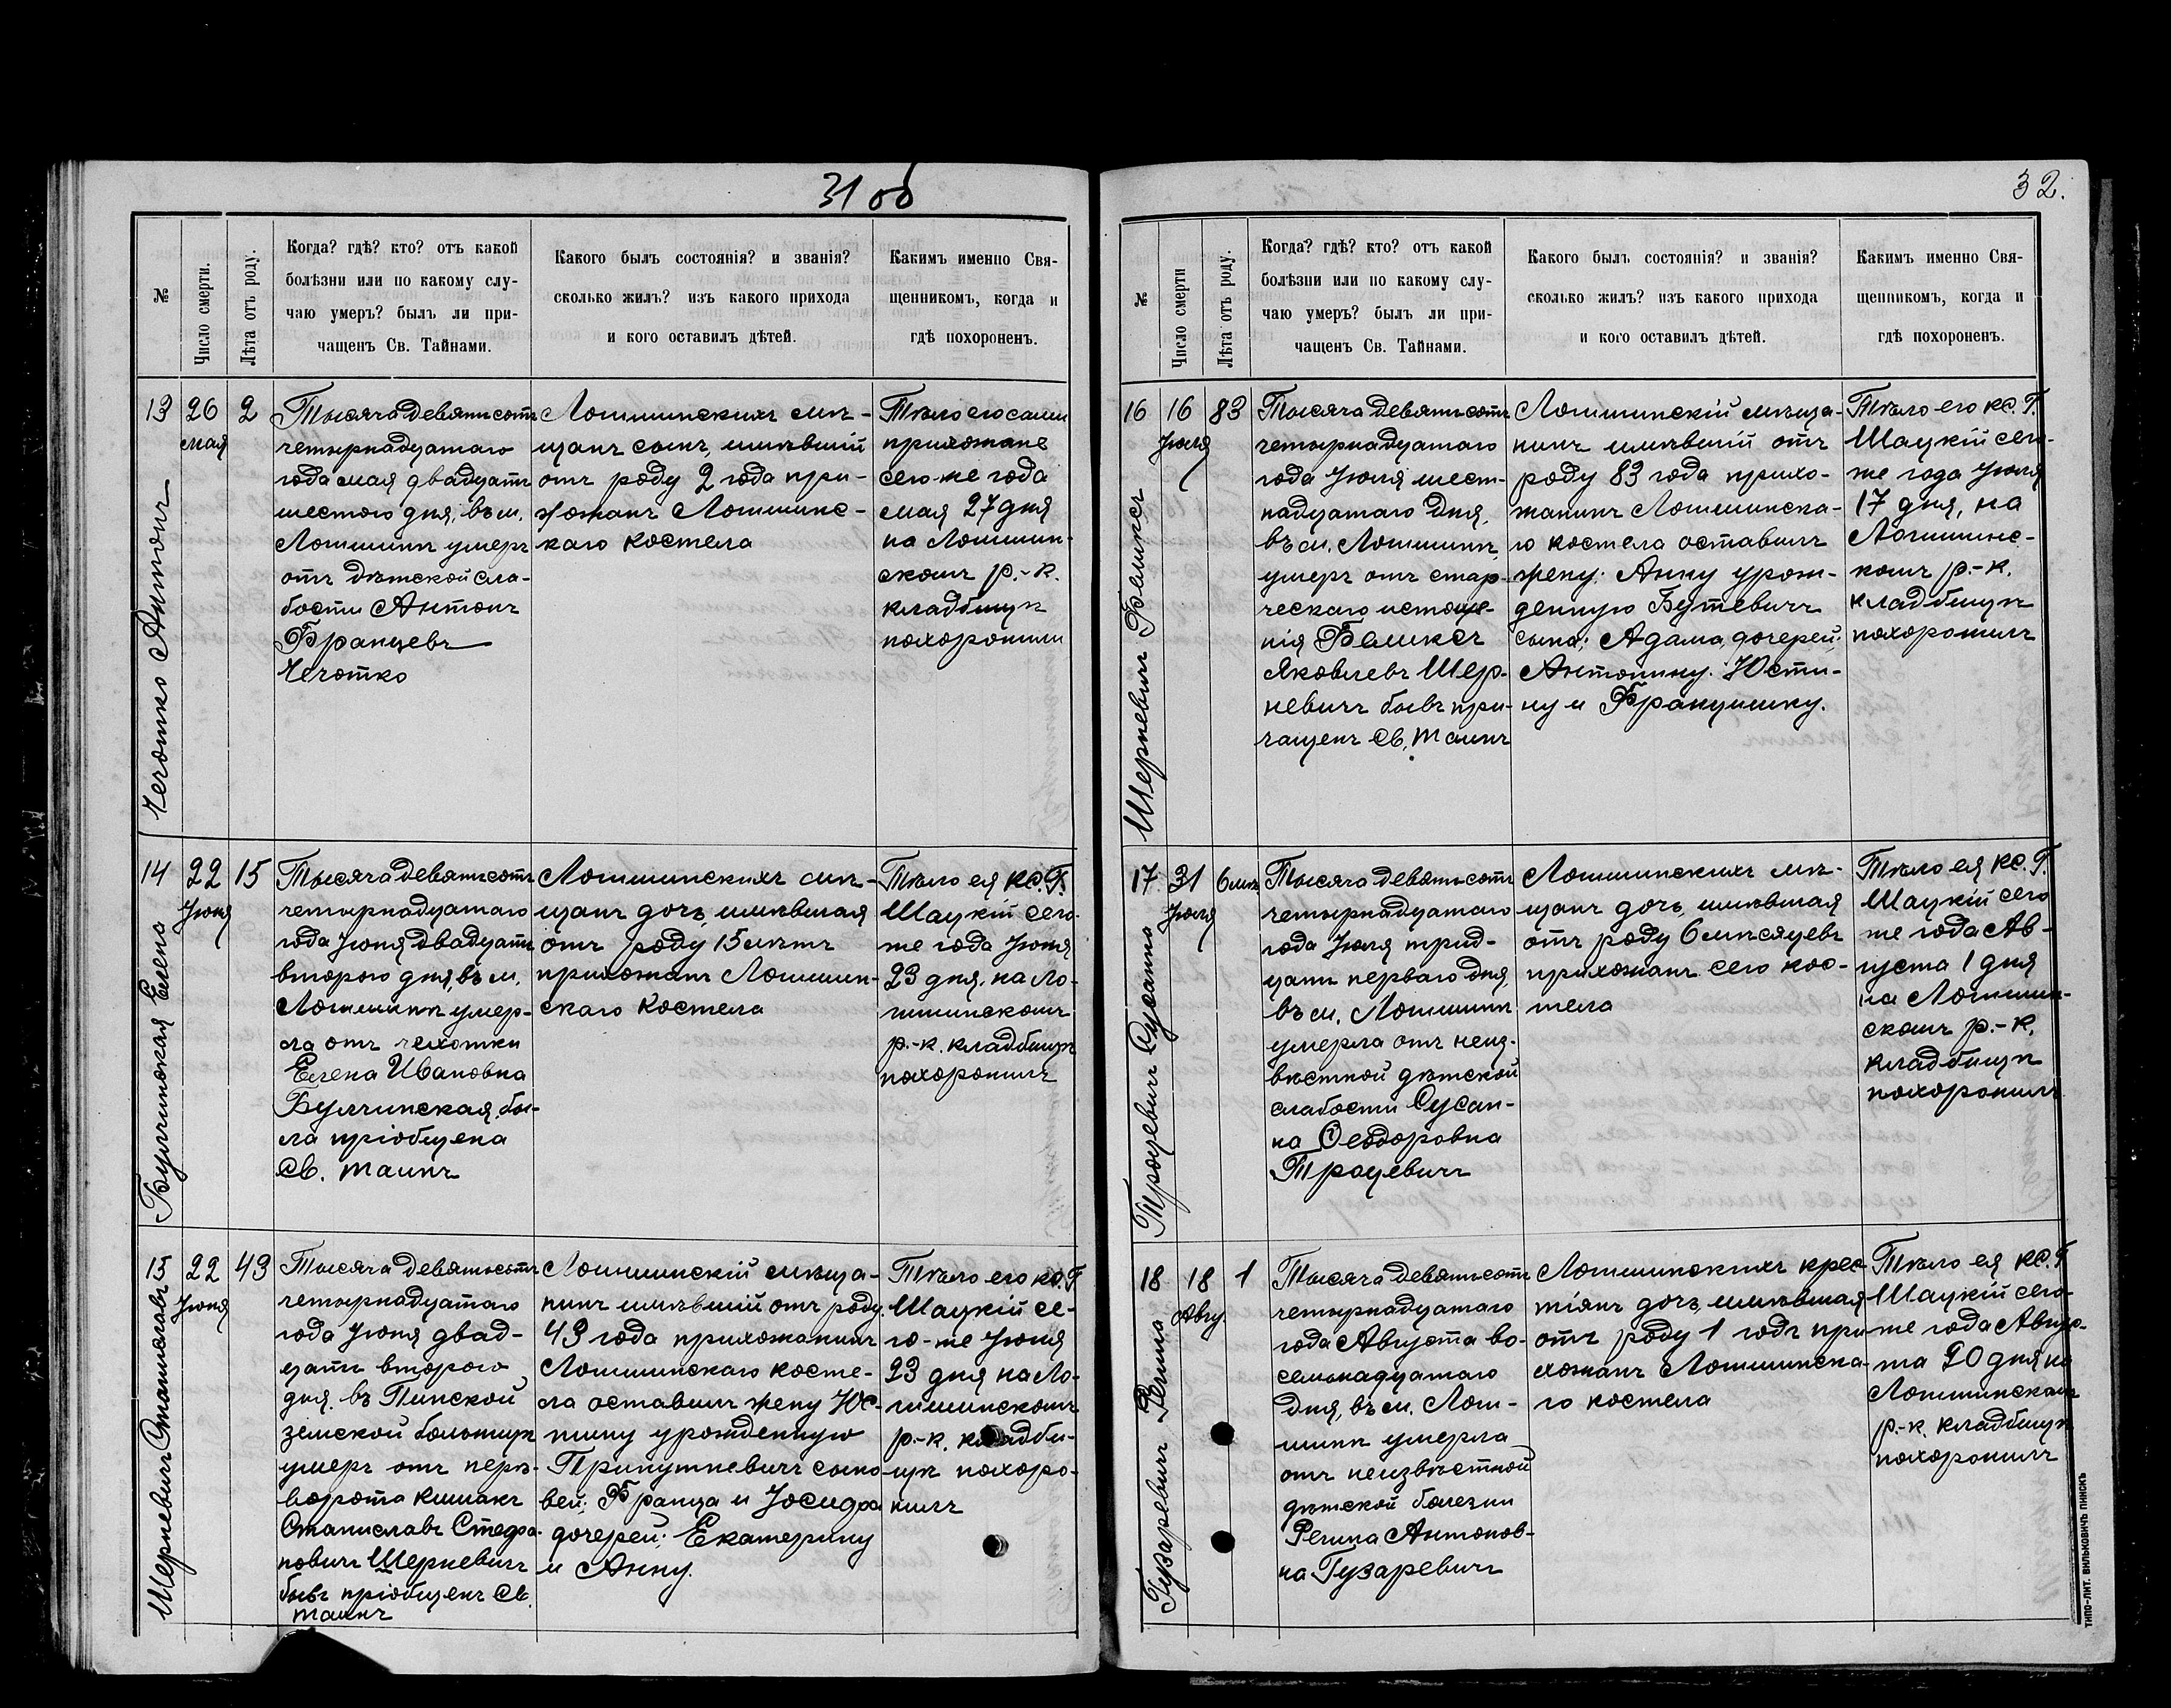 31 об
№
Число смерти.
Лѣта отъ роду.
Когда? гдѣ? кто? отъ какой
болѣзни или по какому слу-
чаю умеръ? былъ ли при-
чащенъ Св. Тайнами.
Какого былъ состоянія? и званія?
сколько жилъ? изъ какого прихода
и кого оставилъ дѣтей.
Какимъ именно Свя-
щенникомъ, когда и
гдѣ похороненъ.
13
26
мая
2
Чечотко Антонъ
Тысяча девятьсотъ
четырнадцатаго
года мая двадцать
шестого дня, въ м.
Логишинѣ умеръ
отъ дѣтской сла-
бости Антонъ
Францевъ
Чечотко
Логишинскихъ мѣ-
щанъ сынъ, имѣвшій
отъ роду 2 года при-
хожанъ Логишинс-
каго костела
Тѣло его сами
прихожане
сего-же года
мая 27 дня
на Логишин-
скомъ р.-к.
кладбищѣ
похоронили
14
22
Іюня
15
Булчинская Елена
Тысяча девятьсотъ
четырнадцатаго
года Іюня двадцать
второго дня, въ м.
Логишинѣ умер-
ла отъ чехотки
Елена Ивановна
Булчинская, бы-
ла пріобщена
Св. таинъ
Логишинскихъ мѣ-
щанъ дочь, имѣвшая
отъ роду 15 лѣтъ
прихожанъ Логишин-
скаго костела
Тѣло ея кс. Г.
Шауцкій сего-
же года Іюня
23 дня, на Ло-
гишинскомъ
р.-к. кладбищѣ
похоронилъ
15
22
Іюня
43
Шерневичъ Станиславъ
Тысяча девятьсотъ
четырнадцатаго
года Іюня двад-
цать второго
дня, въ Пинской
земской больницѣ
умеръ отъ перѣ-
ворота кишакъ
Станиславъ Стефа-
новичъ Шерневичъ
бывъ пріобщенъ Св.
таинъ
Логишинскій мѣща-
нинъ имѣвшій отъ роду
43 года прихожанинъ
Логишинскаго косте-
ла оставилъ жену Юс-
тину урожденную
Прикутневичъ сыно-
вей: Франца и Іосифа
дочерей: Екатерину
и Анну.
Тѣло его кс. Г
Шауцкій се-
го-же Іюня
23 дня на Ло-
гишинскомъ
р.-к. кладби-
щѣ похоро-
нилъ
32.
№
Число смерти
Лѣта отъ роду.
Когда? гдѣ? кто? отъ какой
болѣзни или по какому слу-
чаю умеръ? былъ ли при-
чащенъ Св. Тайнами.
Какого былъ состоянія? и званія?
сколько жилъ? изъ какого прихода
и кого оставилъ дѣтей.
Какимъ именно Свя-
щенникомъ, когда и
гдѣ похороненъ.
16
16
Іюля
83
Шерневичъ Феликсъ
Тысяча девятьсотъ
четырнадцатаго
года Іюля шест-
надцатаго дня,
въ м. Логишинѣ,
умеръ отъ стар-
ческаго истоще-
нія Феликсъ
Яковлевъ Шер-
невичъ бывъ при-
чащенъ Св. таинъ
Логишинскій мѣща-
нинъ имѣвшій отъ
роду 83 года прихо-
жанинъ Логишинска-
го костела оставилъ
жену: Анну урож-
денную Бутевичъ
сына: Адама, дочерей:
Антонину, Юсти-
ну и Францишку.
Тѣло его кс. Г.
Шауцкій сего-
же года Іюля
17 дня, на
Логишинс-
комъ р.-к.
кладбищѣ
похоронилъ
17
31
Іюля
6 мѣс
Троцевичъ Сузанна
Тысяча девятьсотъ
четырнадцатаго
года Іюля трид-
цать перваго дня,
въ м. Логишинѣ
умерла отъ неиз-
вѣстной дѣтской
слабости Сусан-
на Ѳеодоровна
Троцевичъ
Логишинскихъ мѣ-
щанъ дочь, имѣвшая
отъ роду 6 мѣсяцевъ
прихожанъ сего кос-
тела
Тѣло ея кс. Г.
Шауцкій сего
же года Ав-
густа 1 дня
на Логишин-
скомъ р.-к.
кладбищѣ
похоронилъ
18
18
Авгу.
1
Гузаревичъ Регина
Тысяча девятьсотъ
четырнадцатаго
года Августа во-
семьнадцатаго
дня, въ м. Логи-
шинѣ умерла
отъ неизвѣстной
дѣтской болезни
Регина Антонов-
на Гузаревичъ
Логишинскихъ крес-
тіянъ дочь, имѣвшая
отъ роду 1 годъ при-
хожанъ Логишинска-
го костела
Тѣло ея кс. Г
Шауцкій сего-
же года Авгус-
та 20 дня на
Логишинскомъ
р.-к. кладбищѣ
похоронилъ
ТИПО-ЛИТ. ВИЛЬКОВИЧЪ ПИНСКЪ